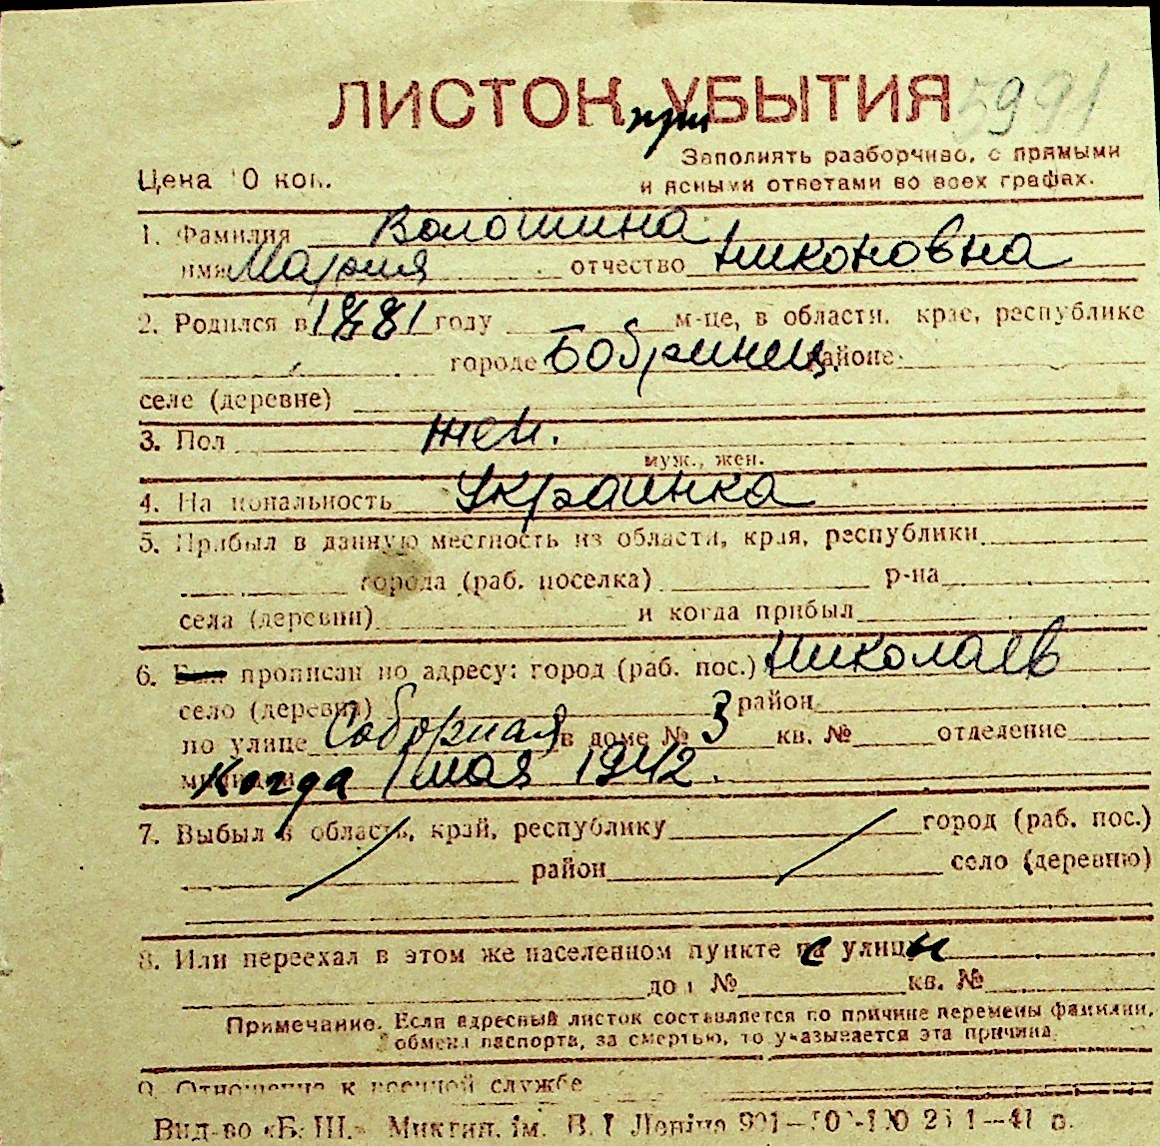 ЛИСТОК при УБЫТИЯ 5991
Заполнять разборчиво, с прямыми
Цена 10 коп. и ясными ответами во всех графах.
1. Фамилия Волошина
имя Мария отчество Никоновна
2. Родился в 1881 году м-це, в области, крае, республике
городе Бобринец районе
селе (деревне)
3. Пол жен.
муж., жен.
4. Национальность украинка
5. Прибыл в данную местность из области, края, республики
города (раб. поселка) р-на
села (деревни) и когда прибыл
6. Был прописан по адресу: город (раб. пос.) Николаев
село (деревня) район
по улице Соборная в доме № 3 кв. № отделение
милиции Когда 1 мая 1942.
7. Выбыл в область, край, республику город (раб. пос.)
район село (деревню)
8. Или переехал в этом же населенном пункте с улицы
дом № кв. №
Примечание. Если адресный листок составляется по причине перемены фамилии,
обмена паспорта, за смертью, то указывается эта причина.
9. Отношение к военной службе
Вид-во «Б. Ш.» Микгип. ім. В. І Леніна